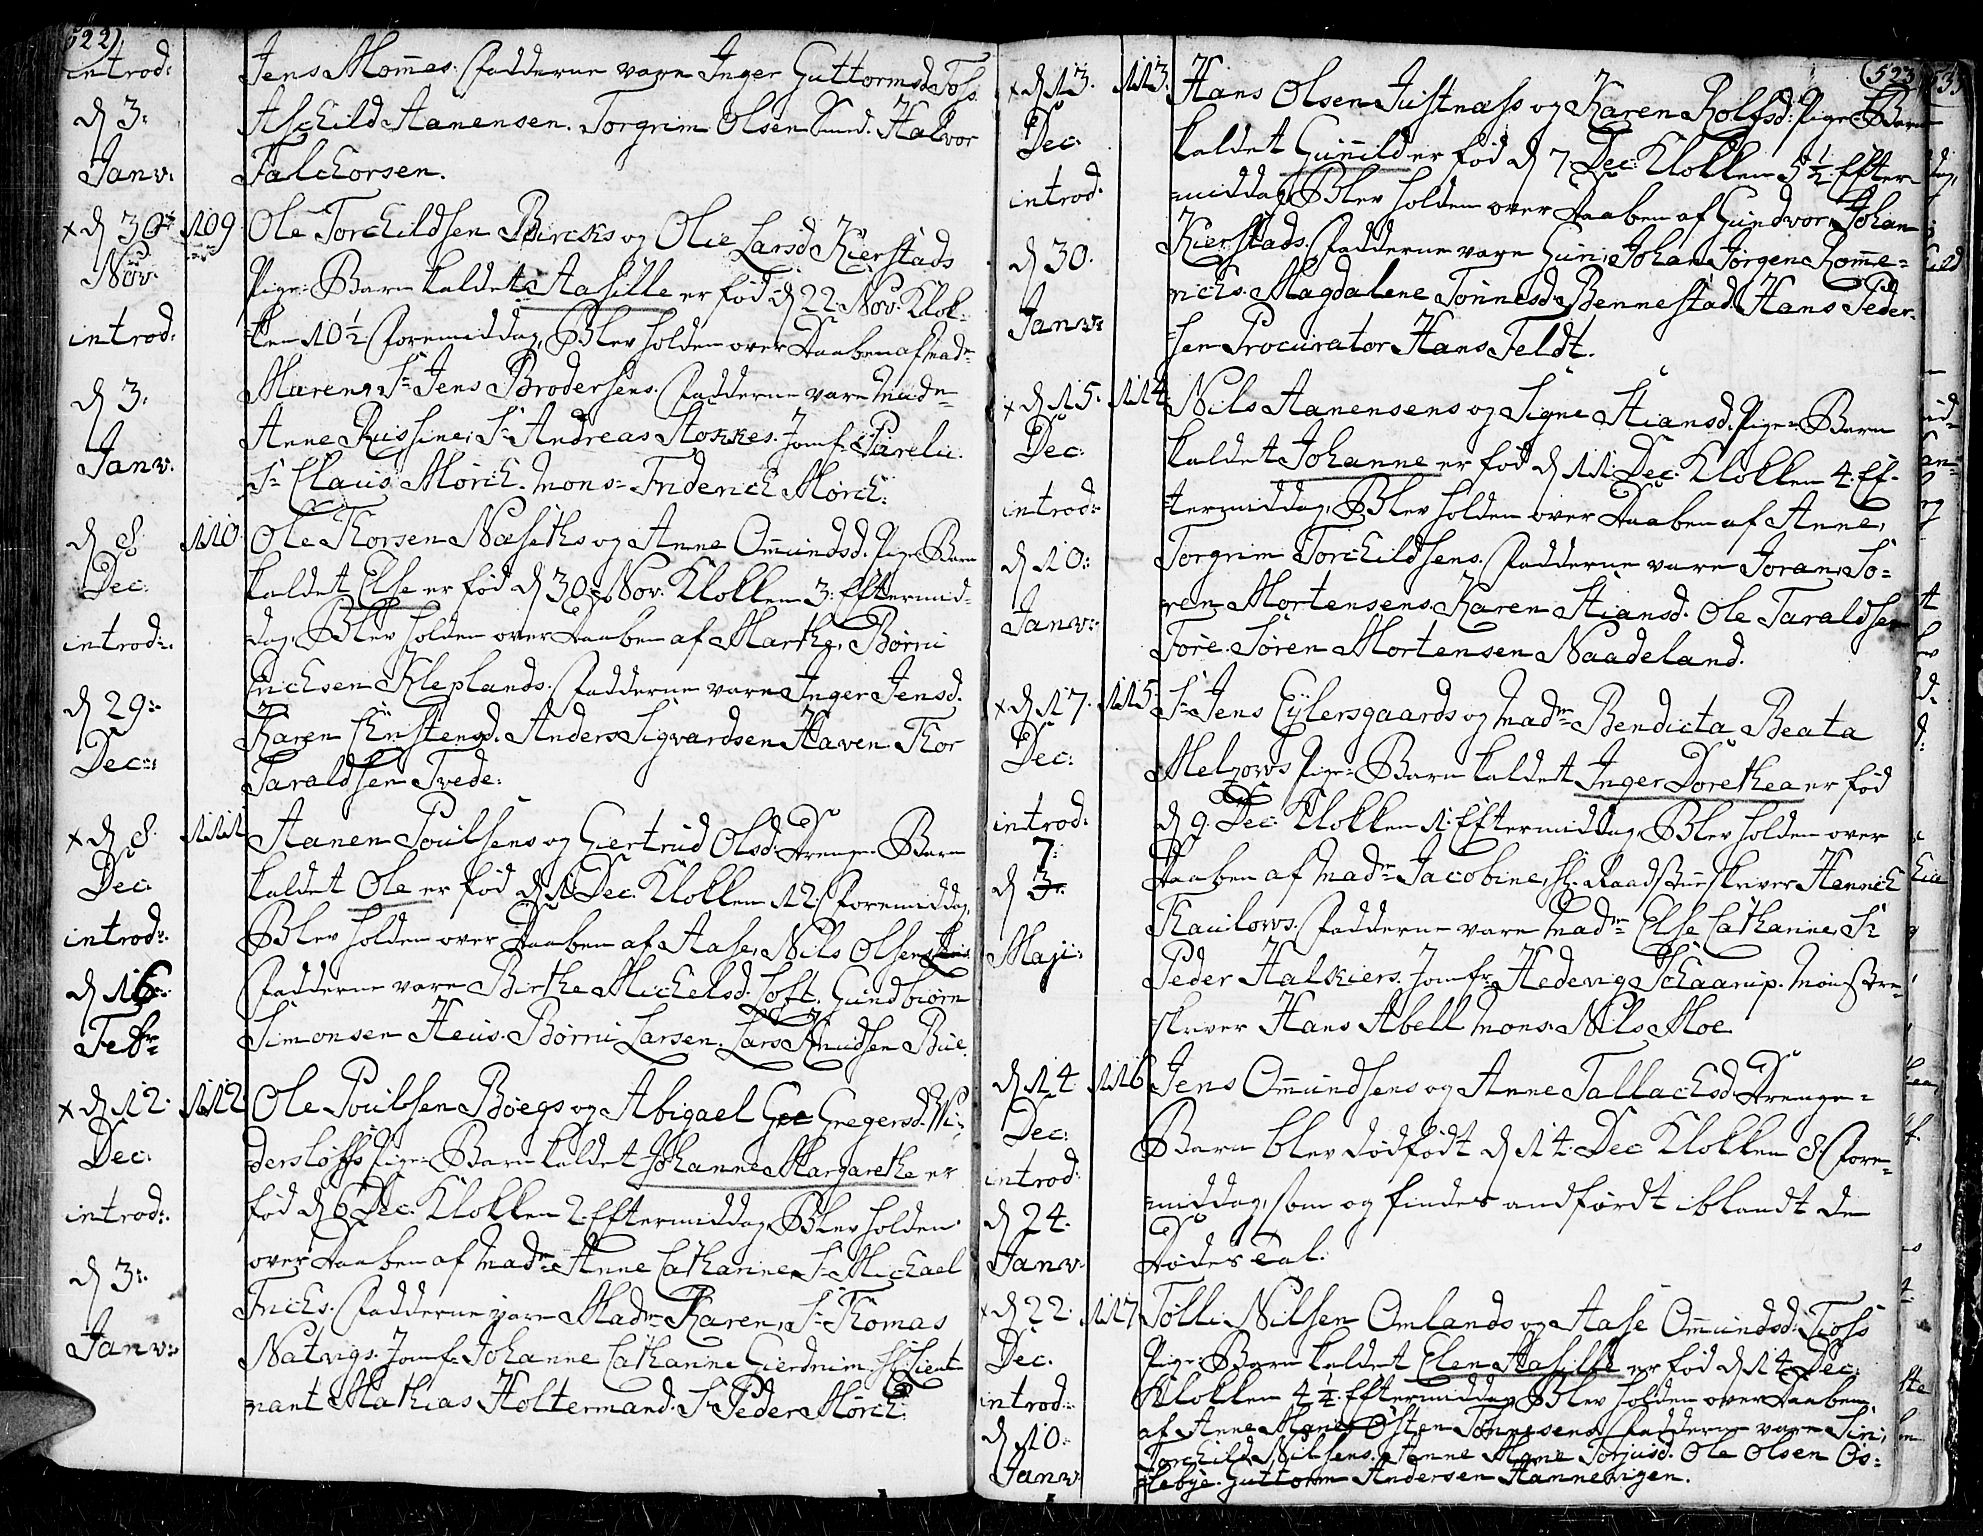 522)
introd:
d 3:
Janv:
Jens Mommes. Fadderne vare Inger Guttormsd. Foss.
Aschild Aanensen. Torgrim Olsen Lund. Halvor
Falchorsen.
x d 30te
Nov:
introd:
d 3.
Janv.
109
Ole Torchildsen Bircks og Olie Larsd Kierstads
Pige-Barn kaldet Aasille er fød d 22. Nov. Klok-
ken 10½ Formiddag, Blev holden over Daaben af Madme
Maren, Sr Jens Brodersens. Fadderne vare Madme
Anne Russine, Sr Andreas Stokkes. Jomf: Parelii.
Sr Claus Mørch. Mons= Friderich Mørch.
d 8
Dec:
introd:
d 29:
Dec:
110.
Ole Thorsen Næseths og Anne Omundsd. Pige Barn
kaldet Else er fød d 30. Nov. Klokken 3. Eftermid-
dag, Blev holden over Daaben af Marthe, Børni
Erichsen Kleplands. Fadderne vare Inger Jensd.
Karen Christensd. Anders Sigvardsen Haven Thor
Taraldsen Tvede.
x d 8.
Dec:
introd:
d 16:
Febr
111
Aanen Poulsens og Giertrud Olsd: Drenge-Barn
kaldet Ole er fød d 1 Dec. Klokken 12. Formiddag,
Blev holden over Daaben af Aase, Nils Olsens
Fadderne vare Birthe Michelsd. Loft. Gundbiørn
Simonsen Heus. Børni Larsen. Lars Knudsen Bue.
x d 12.
Dec:
introd:
d 3:
Janv:
112
Ole Poulsen Bøegs og Abigael Gre Gregersd. Wi-
dersloffs Pige-Barn kaldet Johanne Margarethe er
fød d 6 Dec. Klokken 2. Eftermiddag, Blev holden
over Daaben af Madme Anne Catharine, Sr Michael
Frichs. Fadderne vare Madme Karen, Sr Thomas
Natvigs. Jomf: Johanne Catharine Gierdrum. Hr Lieut-
nant Mathias Holtermand. Sr Peder Mørch.
(523
x d 13.
Dec:
introd.
d 30.
Janv:
113.
Hans Olsen Justnæss og Karen Rolfsd: Pige-Barn
kaldet Gunnild er fød d 7 Dec: Klokken 5½. Efter-
middag, Blev holden over Daaben af Gundvor, Johan
Kierstads. Fadderne vare Guri, Johan Jørgen Romme-
richs. Magdalene Tønnesd. Bennestad. Hans Peder-
sen Procurator Hans Feldt.
x d 15.
Dec:
introd:
d 10:
Janv:
114.
Nils Aanensens og Signe Stiansd. Pige-Barn
kaldet Johanne er fød d 11. Dec. Klokken 4. Ef-
termiddag, Blev holden over Daaben af Anne,
Torgrim Torchildsens. Fadderne vare Joran, Sø-
ren Mortensens. Karen Stiansd. Ole Taraldsen
Fore. Søren Mortensen Naadeland.
x d 17.
Dec:
introd:
7:
d 3:
Maji:
115.
Sr Jens Eylersgaards og Madme Bendicta Beata
Melzows Pige-Barn kaldet Inger Dorethea er fød
d 9. Dec: Klokken 1. Eftermiddag, Blev holden over
Daaben af Madme Jacobine, Hr Raadstueskriver Henrich
Thaulows. Fadderne vare Madme Else Catharine, Sr
Peder Halkiers. Jomfr. Hedevig Schaarup. Mønstre-
skriver Hans Abell Mons: Nils Moe.
d 14
Dec:
introd:
d 24.
Janv:
116
Jens Omundsens og Anne Tallachsd. Drenge-
Barn blev dødfødt d 14. Dec Klokken 8. Fore-
middag, som og findes andførdt iblandt de
Dødes Tal.
x d 22.
Dec.
introd:
d 10:
Janv:
117
Tolli Nilsen Omlands og Aase Omundsd: Foss
Pige-Barn kaldet Elen Aasille er fød d 14. Dec:
Klokken 4¼. Eftermiddag, Blev holden over Daaben
af Anne Marie Østen Tønnesens. Fadderne vare Siri,
Torchild Nilsens. Anne Marie Torjusd. Ole Olsen Øs-
lebye. Guttorm Andersen Hannevigen.